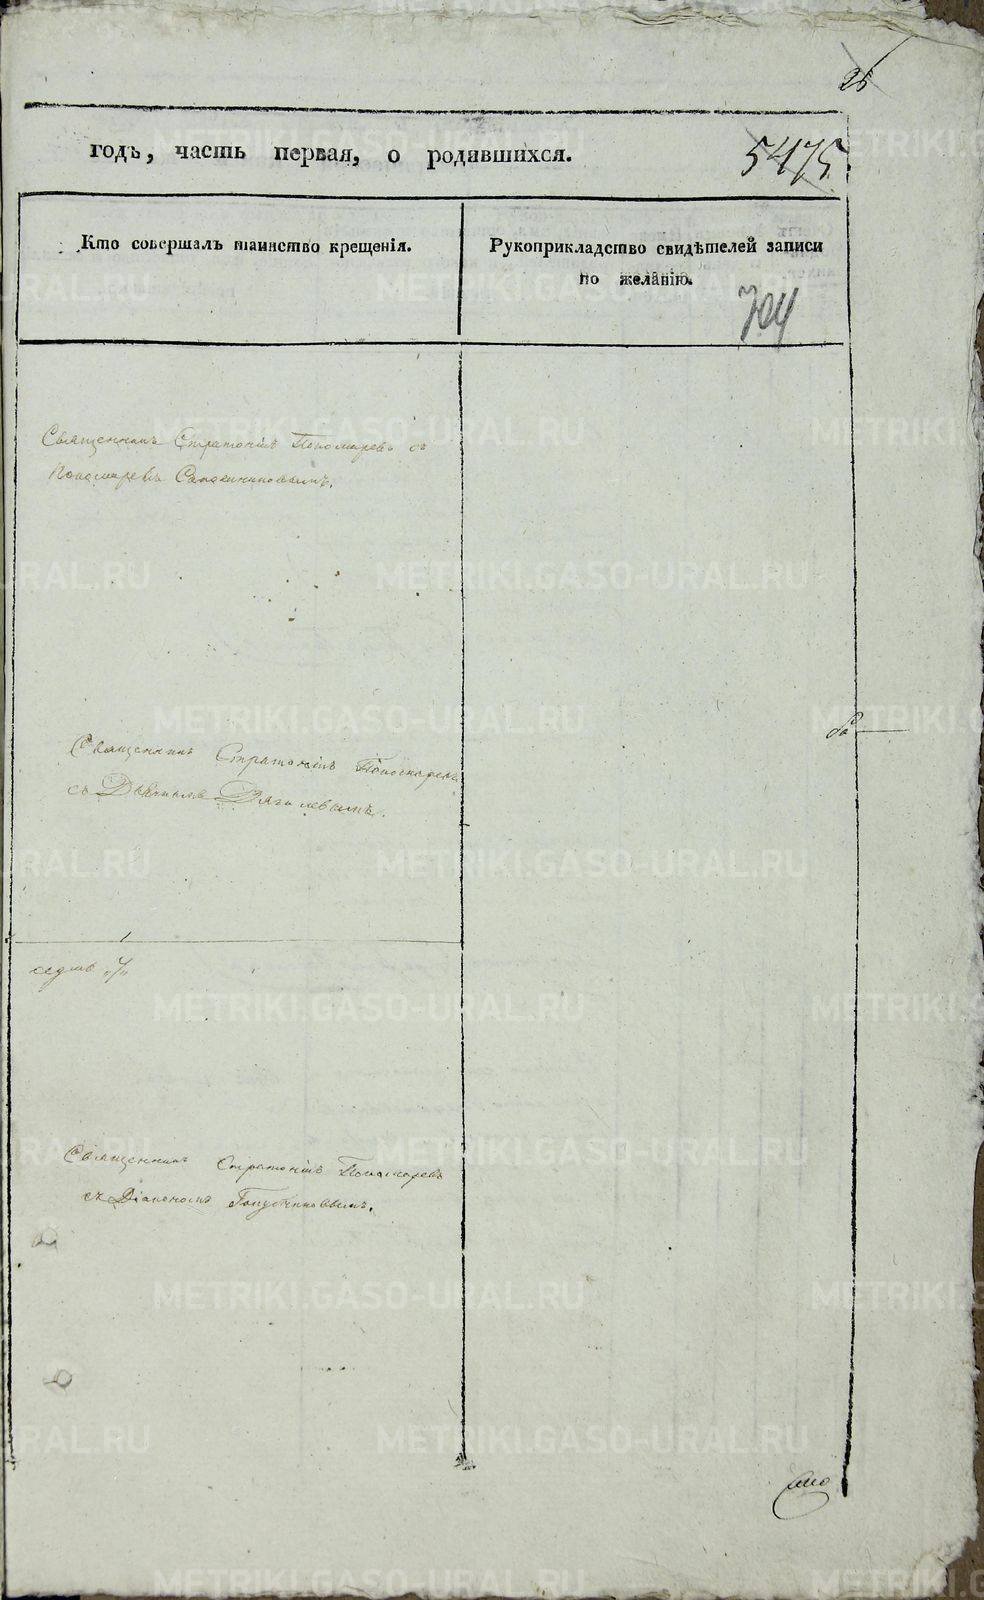 26
годъ, часть первая, о родившихся.
5475
Кто совершалъ таинство крещенія.
Рукоприкладство свидѣтелей записи
по желанію.
704
Священникъ Стратоникъ Пономаревъ съ
Пономаремъ
Священникъ Стратоникъ Пономаревъ
съ Дьячкомъ Дягилевымъ.
седмь „7„
Священникъ Стратоникъ Пономаревъ
съ Діакономъ Топустиновымъ.
METRIKI.GASO-URAL.RU